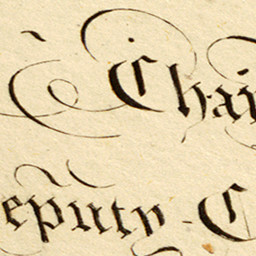 Chai
eputy - C